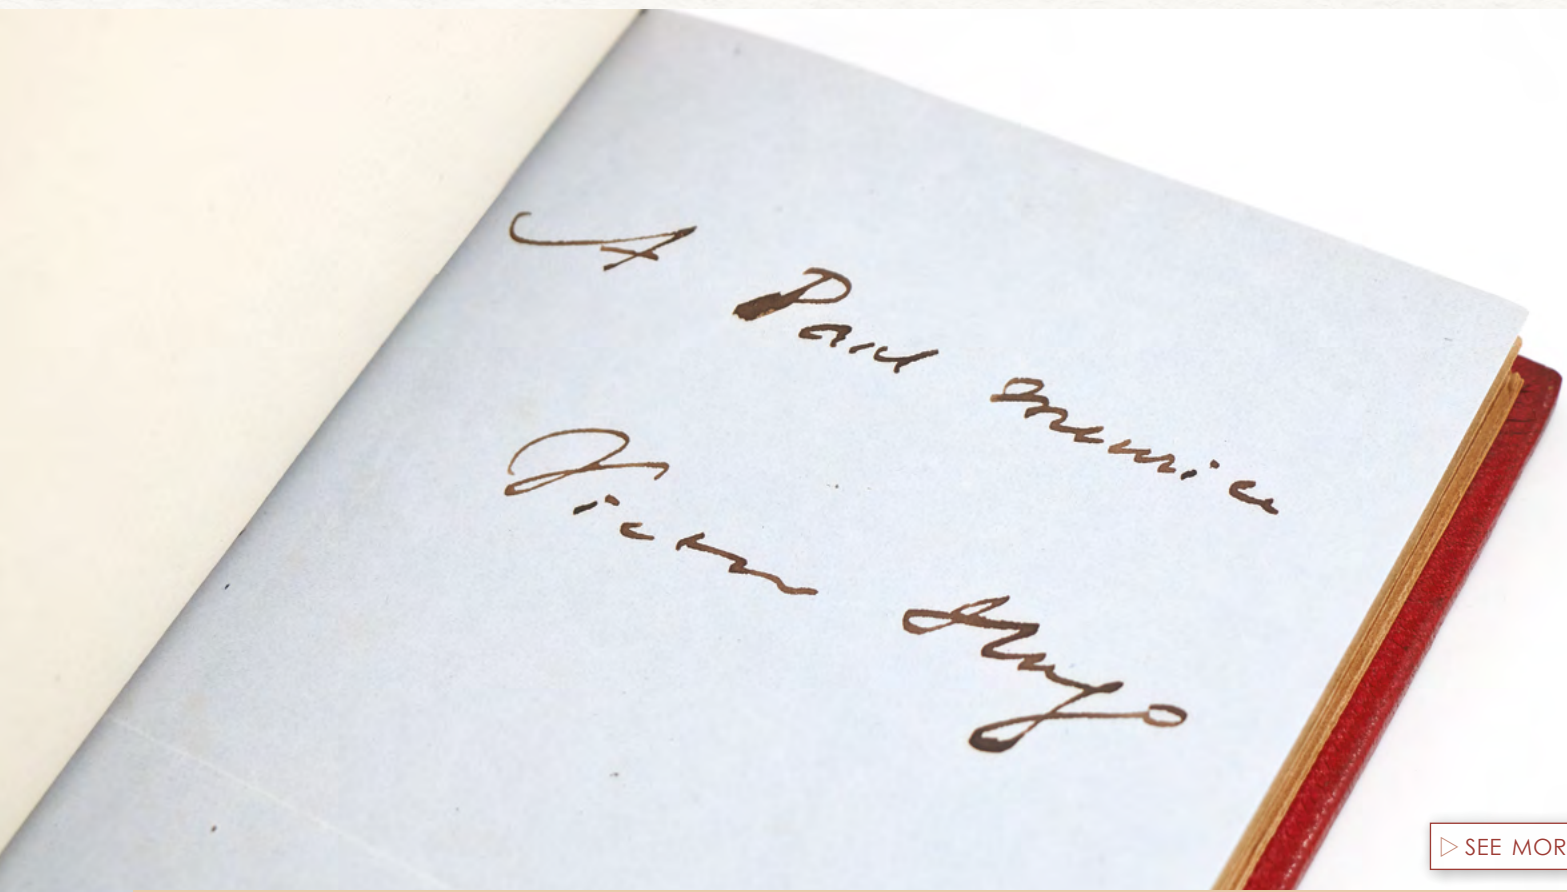 A Paul Meurice
Victor Hugo
SEE MOR